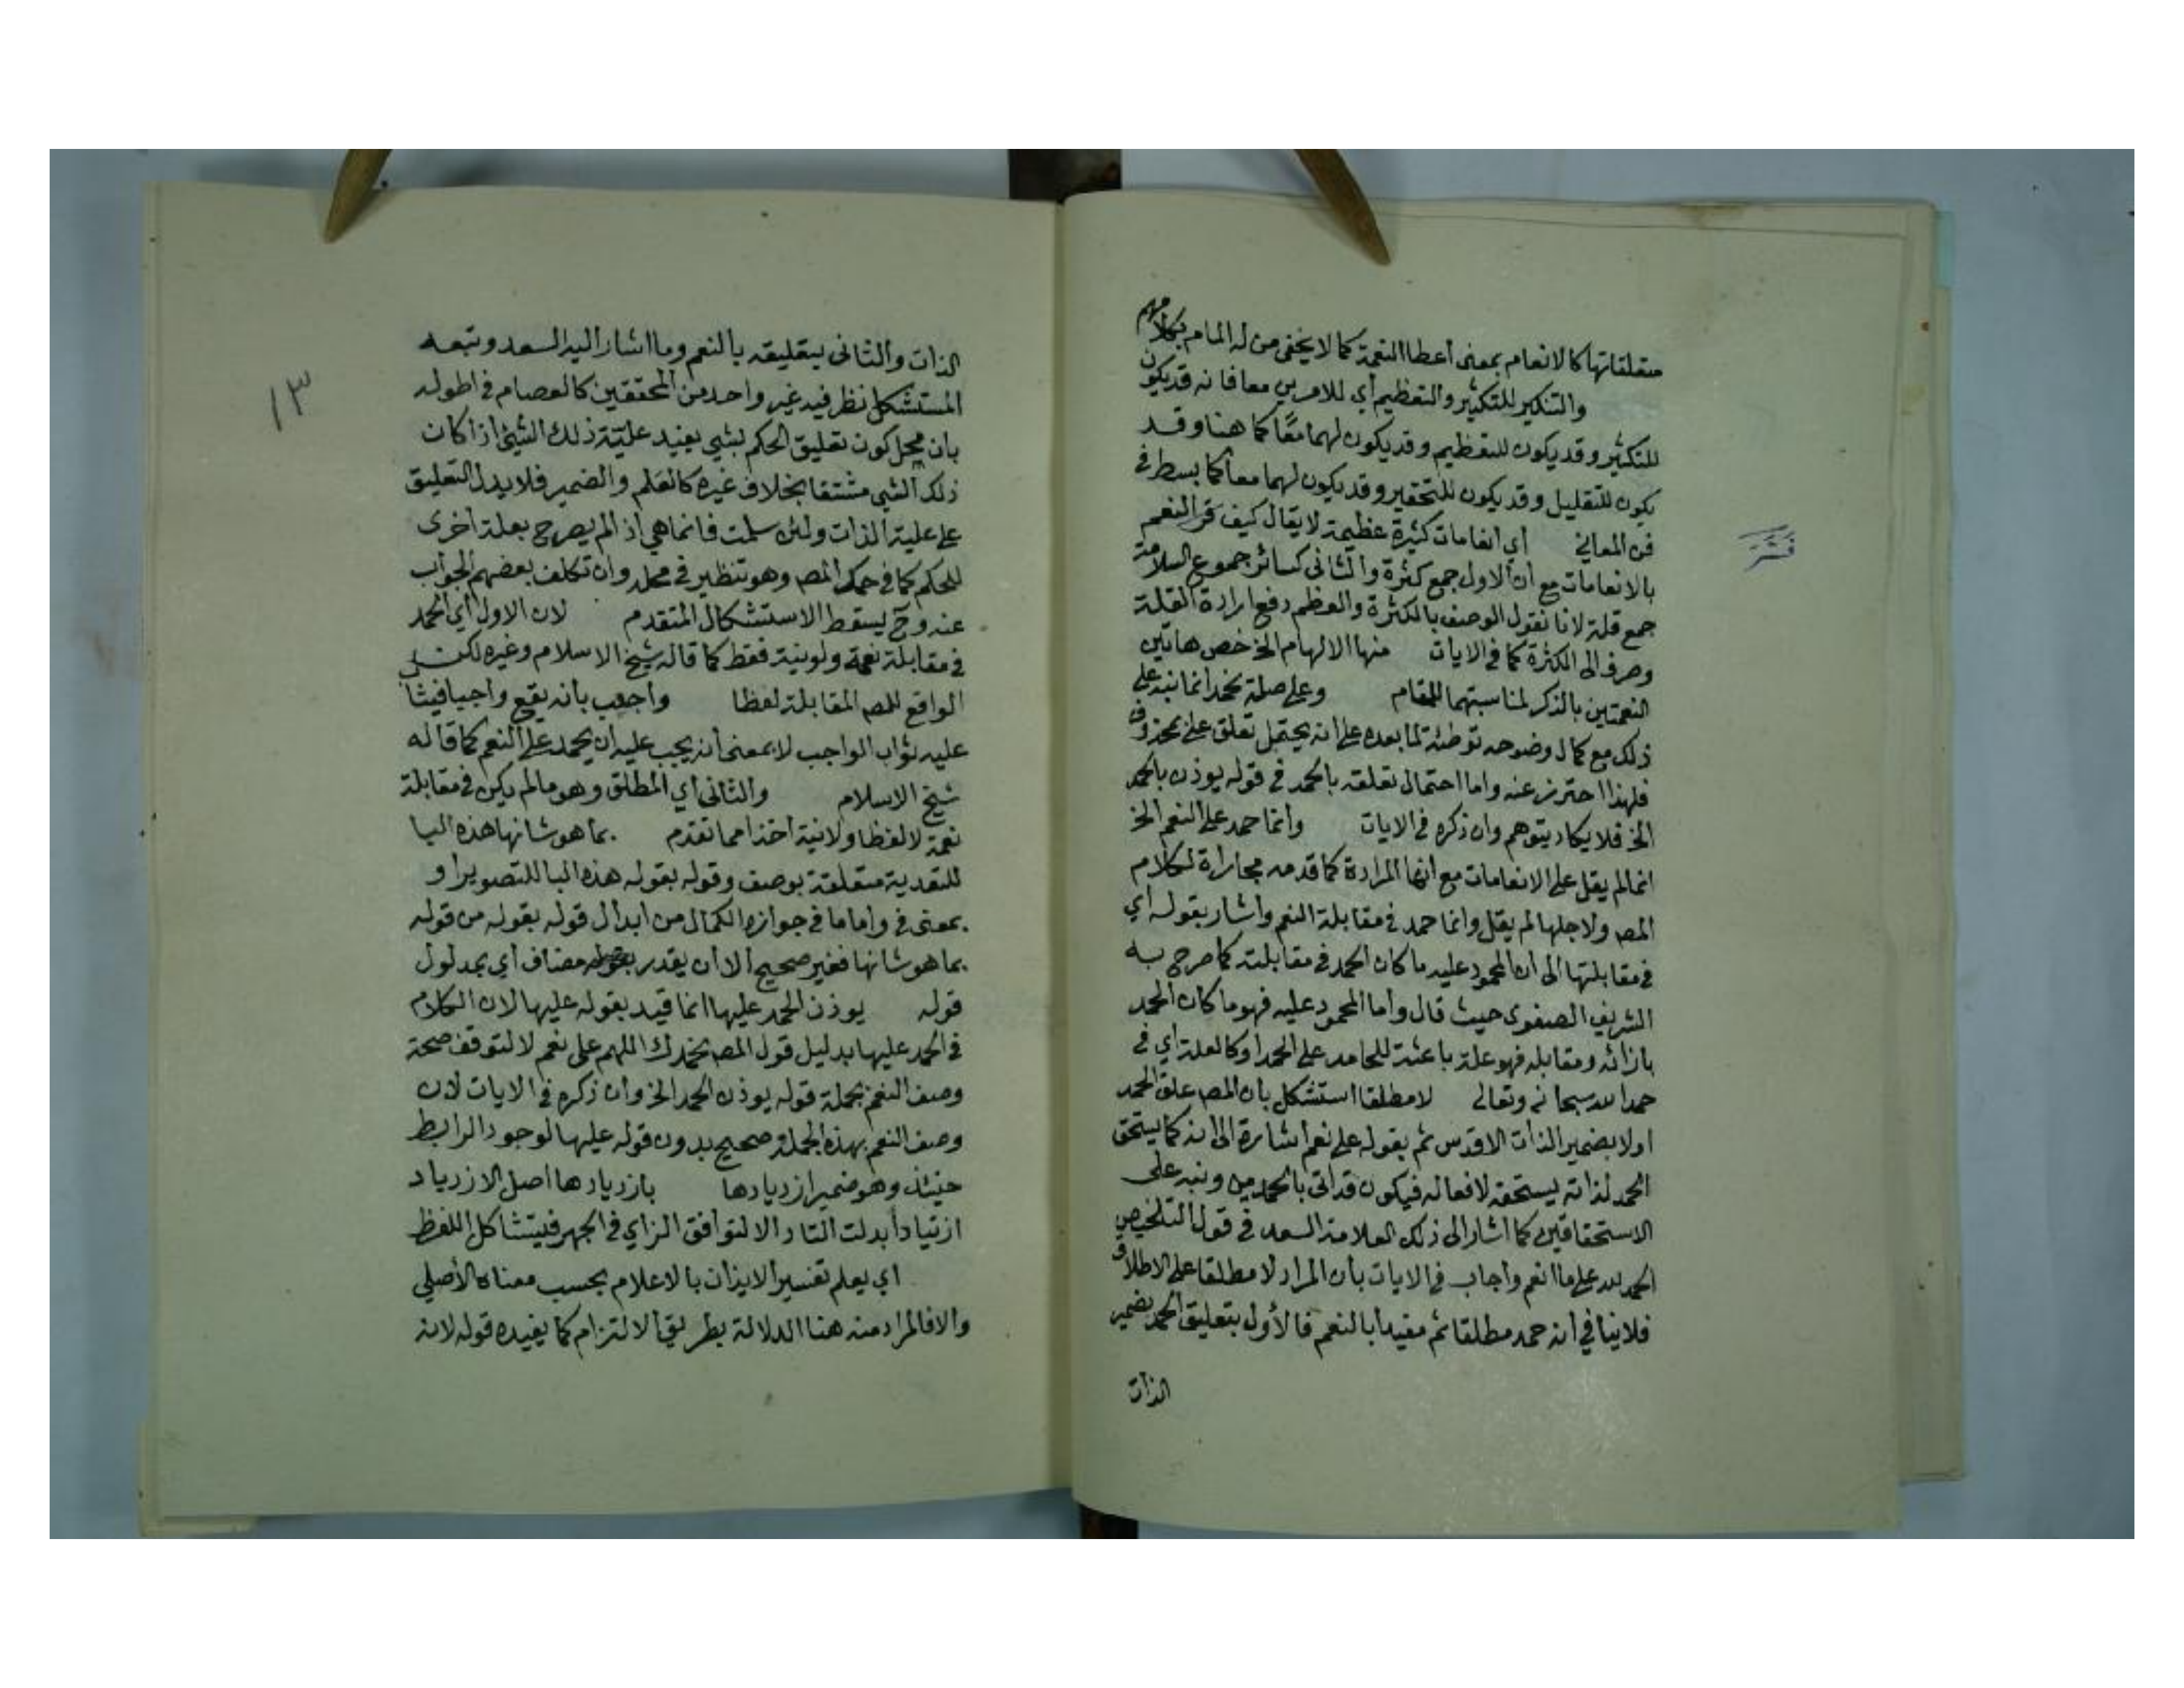 متعلقاتها كالانعام بمعنى أعطا النعمة كما لا يخفى من له المام بكلامهم
والتنكير للتكثير والتعظيم أي للامرين معا فانه قد يكون
للتكثير وقد يكون للتعظيم وقد يكون لهما معًا كما هنا وقد
يكون للتقليل وقد يكون للتحقير وقد يكون لهما معا كما بسط في
فن المعاني أي انعامات كثيرة عظيمة لا يقال كيف فسر النعم
فسر
بالانعامات مع أن الاول جمع كثرة والثانى كسائر جموع السلامة
جمع قلة لانا نقول الوصف بالكثرة والعظم دفع ارادة القلة
وصرف الى الكثرة كما في الايات منها الالهام الخ خص هاتين
النعمتين بالذكر لمناسبتهما للمقام وعلى صلة نحمد انما نبه على
ذلك مع كمال وضوحه توطئة لما بعده على انه يحتمل تعلق على بمحذوف
فلهذا احترز عنه واما احتمال تعلقه بالحمد في قوله يوذن بالحمد
الخ فلا يكاد يتوهم وان ذكره في الايات وانما حمد على النعم الخ
انما لم يقل على الانعامات مع أنها المرادة كما قدمه مجاراة لكلام
المصـ ولاجلها لم يقل وانما حمد في مقابلة النعم واشار بقوله اي
في مقابلتها الى أن المحمود عليه ما كان الحمد في مقابلته كما صرح به
الشريف الصفوى حيث قال وأما المحمود عليه فهو ما كان الحمد
بازائه ومقابله فهو علة باعثة للحامد على الحمد او كالعلة اي في
حمد الله سبحانه وتعالى لا مطلقا استشكل بان المصـ علق الحمد
اولا بضمير الذات الاقدس ثم بقوله على نعم اشارة الى انه كما يستحق
الحمد لذاته يستحقه لافعاله فيكون قد اتى بالحمدين ونبه على
الاستحقاقين كما اشار الى ذلك العلامة السعد في قول التلخيص
الحمد لله على ما انعم وأجاب في الايات بأن المراد لا مطلقا على الاطلاق
فلا ينافي أنه حمد مطلقا ثم مقيدا بالنعم فالأول بتعليق الحمد بضمير
الذات
١٣
الذات والثانى بتعليقه بالنعم وما اشار اليه السعد وتبعه
المستشكل نظر فيه غير واحد من المحققين كالعصام في اطوله
بان محل كون تعليق الحكم بشي يفيد علية ذلك الشيئ اذا كان
ذلك الشي مشتقا بخلاف غيره كالعلم والضمير فلا يدل التعليق
على علية الذات ولئن سلمت فانما هي اذ لم يصرح بعلة اخرى
للحكم كما في حمد المصـ وهو تنظير في محله وان تكلف بعضهم الجواب
عنه وح يسقط الاستشكال المتقدم لان الاول أي الحمد
في مقابلة نعمة ولو نية فقط كما قاله شيخ الاسلام وغيره لكن
الواقع للمصـ المقابلة لفظا واجيب بانه يقع واجبا فيثاب
عليه ثواب الواجب لا بمعنى أنه يجب عليه ان يحمد على النعم كما قاله
شيخ الاسلام والثانى أي المطلق وهو ما لم يكن في مقابلة
نعمة لا لفظا ولا نية اخذا مما تقدم بما هو شانها هذه البا
للتعدية متعلقة بوصف وقوله بقوله هذه البا للتصوير او
بمعنى في واما ما في جوازه الكمال من ابدال قوله بقوله من قوله
بما هو شانها فغير صحيح الا أن يقدر مضاف أي بمدلول
قوله يوذن الحمد عليها انما قيد بقوله عليها لان الكلام
في الحمد عليها بدليل قول المصـ نحمدك اللهم على نعم لا لتوقف صحة
وصف النعم بجملة قوله يوذن الحمد الخ وان ذكره في الايات لان
وصف النعم بهذه الجملة صحيح بدون قوله عليها لوجود الرابط
حينئذ وهو ضمير ازديادها بازديادها اصل الازدياد
ازتياد أبدلت التا دالا لتوافق الزاي في الجهر فيتشاكل اللفظ
اي يعلم تفسير الايذان بالاعلام بحسب معناه الأصلي
والا فالمراد منه هنا الدلالة بطريق الالتزام كما يفيده قوله لانه